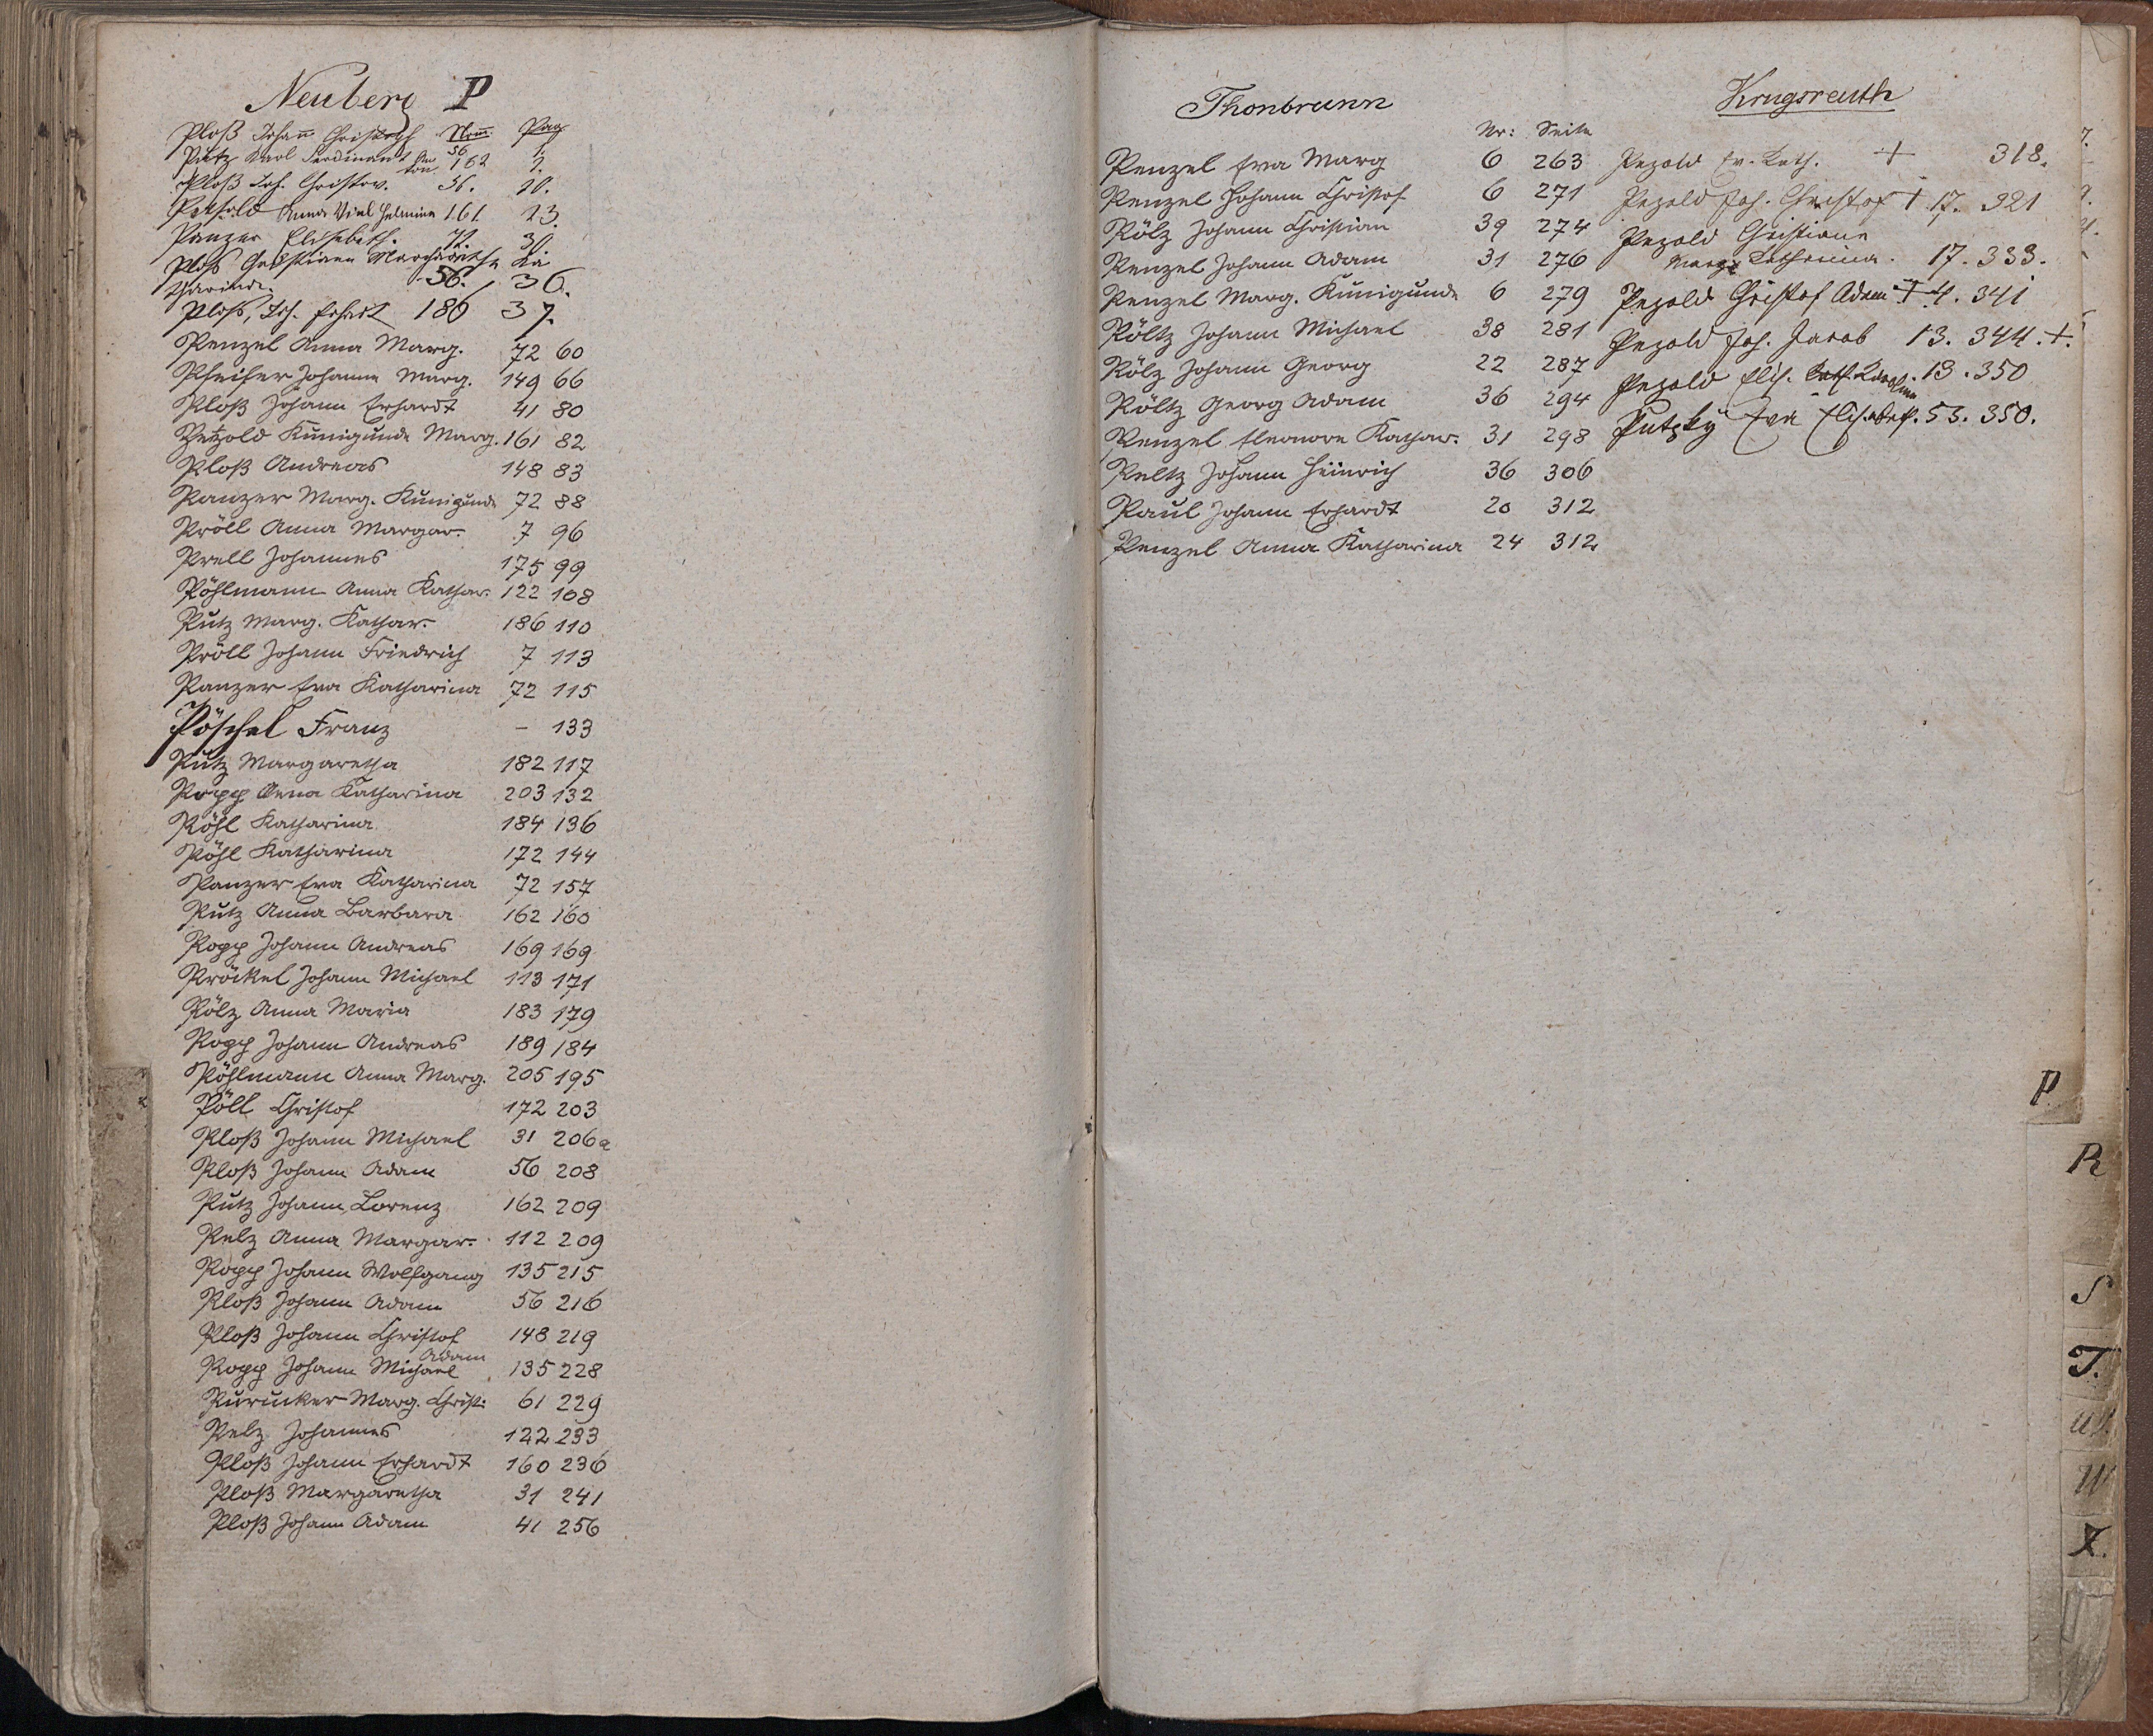 Neuberg P
Ploß Johann Christoph Num: 56 Pag 1.
Putz Karl Ferdinand 162 2.
Ploß Joh. Christov. 56. 20.
Petzold Anna 161. 23.
Panzer Elisabeth. 72. 30.
Ploß Christiane Margaretha Ka
tharina. 56. 36.
Ploß, Joh. Erhart 186 37.
Penzel Anna Marg. 72 60
Pfeifer Johanna Marg. 149 66
Ploß Johann Erhardt 41 80
Petzold Kunigunde Marg. 161 82
Ploß Andreas 148 83
Panzer Marg. Kunigunde 72 88
Pröll Anna Margar. 7 96
Prell Johannes 175 99
Pöhlmann Anna Kathar. 122 108
Putz Marg. Kathar. 186 110
Pröll Johann Friedrich 7 113
Panzer Eva Katharina 72 115
Pöschel Franz – 133
Putz Margaretha 182 117
Popp Anna Katharina 203 132
Pöhl Katharina 184 136
Pöhl Katharina 172 144
Panzer Eva Katharina 72 157
Putz Anna Barbara 162 160
Popp Johann Andreas 169 169
Pröckel Johann Michael 113 171
Pölz Anna Maria 183 179
Popp Johann Andreas 189 184
Pöhlmann Anna Marg. 205 195
Pöll Christof 172 203
Ploß Johann Michael 31 206a
Ploß Johann Adam 56 208
Putz Johann Lorenz 162 209
Pelz Anna Margar. 112 209
Popp Johann Wolfgang 135 215
Ploß Johann Adam 56 216
Ploß Johann Christof 148 219
Adam
Popp Johann Michael 135 228
Purucker Marg. Christ: 61 229
Pelz Johannes 122 233
Ploß Johann Erhardt 160 236
Ploß Margaretha 31 241
Ploß Johann Adam 41 256
Thonbrunn
Nr: Seite
Penzel Eva Marg 6 263
Penzel Johann Christof 6 271
Pölz Johann Christian 39 274
Penzel Johann Adam 31 276
Penzel Marg. Kunigunde 6 279
Pöltz Johann Michael 38 281
Pölz Johann Georg 22 287
Pöltz Georg Adam 36 294
Penzel Eleonore Kathar. 31 298
Peltz Johann Heinrich 36 306
Paul Johann Erhardt 20 312
Penzel Anna Katharina 24 312
Krugsreuth
Pezold Ev. Kath. + 318.
Pezold Joh. Christof + 17. 321
Pezold Christiane
Marg. Katharina. 17. 333.
Pezold Christof Adam + 4. 341
Pezold Joh. Jacob 13. 344. +.
Pezold Elis. Kath. Karoline 13. 350
Putzky Eva Elisabeth. 53. 350.
P.
R
S
T.
UV.
W
Z.